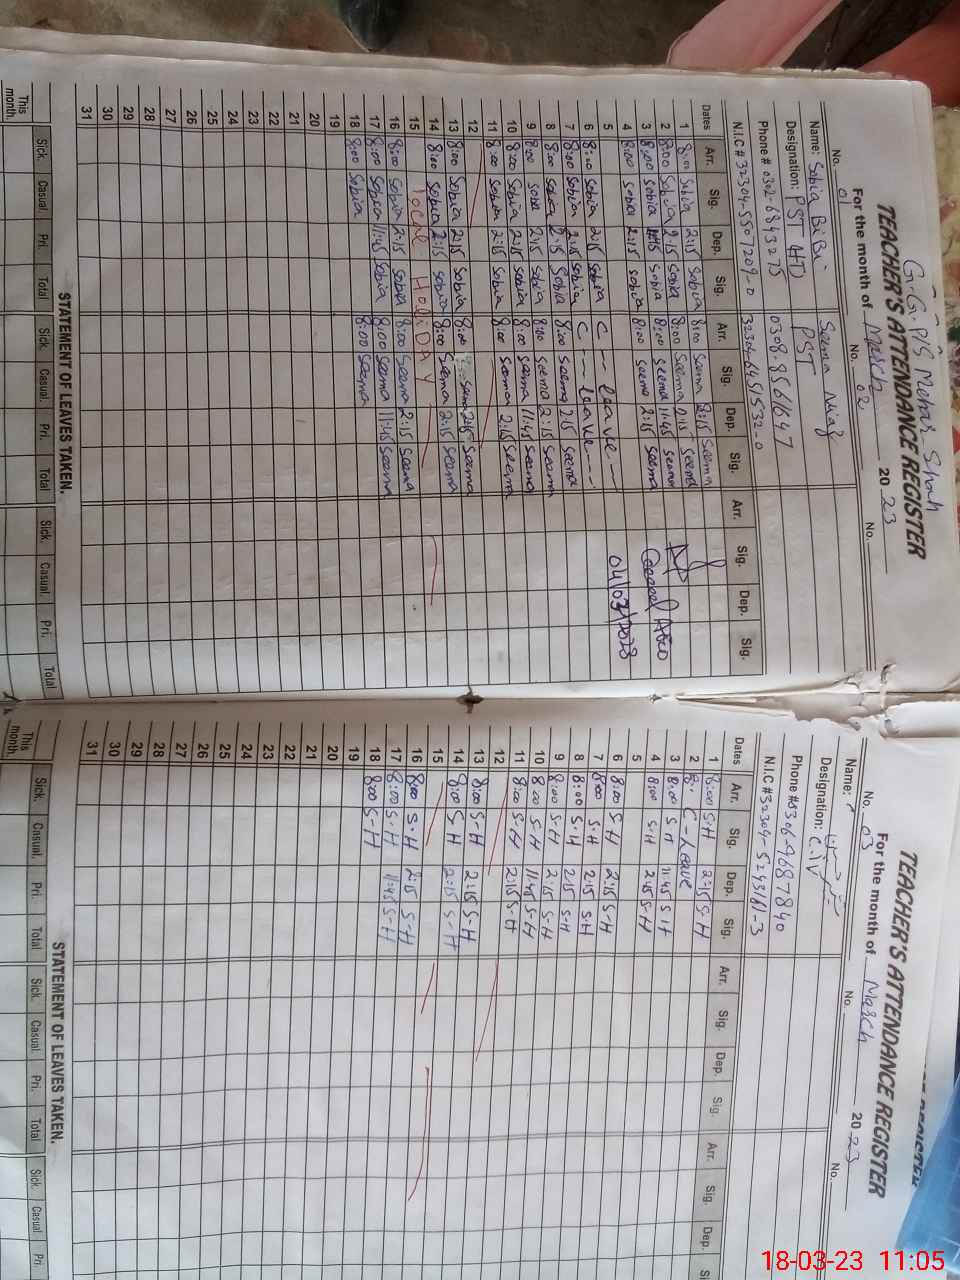 G.G.P/S Mehar Shah
TEACHER'S ATTENDANCE REGISTER
For the month of March 2023
No. 01 No. 02 No.
Name: Sobia BiBi Seema Niaz
Designation: PST HTD PST
Phone # 0302-6843275 0308-8561647
N.I.C # 32304-5507209-0 32304-6451532-0
Dates Arr. Sig. Dep. Sig. Arr. Sig. Dep. Sig. Arr. Sig. Dep. Sig.
1 8:00 Sobia 2:15 Sobia 8:00 Seema 2:15 Seema
2 8:00 Sobia 2:15 Sobia 8:00 Seema 2:15 Seema
3 8:00 Sobia 11:45 Sobia 8:00 Seema 11:45 Seema
4 8:00 Sobia 2:15 Sobia 8:00 Seema 2:15 Seema
04/03/2023
5
6 8:00 Sobia 2:15 Sobia C - leave -
7 8:00 Sobia 2:15 Sobia C - leave -
8 8:00 Sobia 2:15 Sobia 8:00 Seema 2:15 Seema
9 8:00 Sobia 2:15 Sobia 8:00 Seema 2:15 Seema
10 8:00 Sobia 2:15 Sobia 8:00 Seema 11:45 Seema
11 8:00 Sobia 2:15 Sobia 8:00 Seema 2:15 Seema
12
13 8:00 Sobia 2:15 Sobia 8:00 Seema 2:15 Seema
14 8:00 Sobia 2:15 Sobia 8:00 Seema 2:15 Seema
15 Local HoliDAY
16 8:00 Sobia 2:15 Sobia 8:00 Seema 2:15 Seema
17 8:00 Sobia 11:45 Sobia 8:00 Seema 11:45 Seema
18 8:00 Sobia 8:00 Seema
19
20
21
22
23
24
25
26
27
28
29
30
31
STATEMENT OF LEAVES TAKEN.
Sick. Casual. Pri. Total Sick. Casual. Pri. Total Sick. Casual. Pri. Total
This month.
TEACHER'S ATTENDANCE REGISTER
For the month of March 2023
No. 03 No. No.
Name:
Designation: C.IV
Phone # 0306-4687840
N.I.C # 32304-5243161-3
Dates Arr. Sig. Dep. Sig. Arr. Sig. Dep. Sig. Arr. Sig. Dep.
1 8:00 S.H 2:15 S-H
2 8: C-Leave
3 8:00 S H 11:45 S H
4 8:00 S.H 2:15 S-H
5
6 8:00 S-H 2:15 S-H
7 8:00 S.H 2:15 S.H
8 8:00 S.H 2:15 S-H
9 8:00 S-H 2:15 S-H
10 8:00 S-H 11:45 S-H
11 8:00 S-H 2:15 S-H
12
13 8:00 S-H 2:15 S-H
14 8:00 S-H 2:15 S-H
15
16 8:00 S.H 2:15 S-H
17 8:00 S-H 11:45 S-H
18 8:00 S-H
19
20
21
22
23
24
25
26
27
28
29
30
31
STATEMENT OF LEAVES TAKEN.
Sick. Casual. Pri. Total Sick. Casual. Pri. Total Sick. Casual. Pri.
This month.
18-03-23 11:05